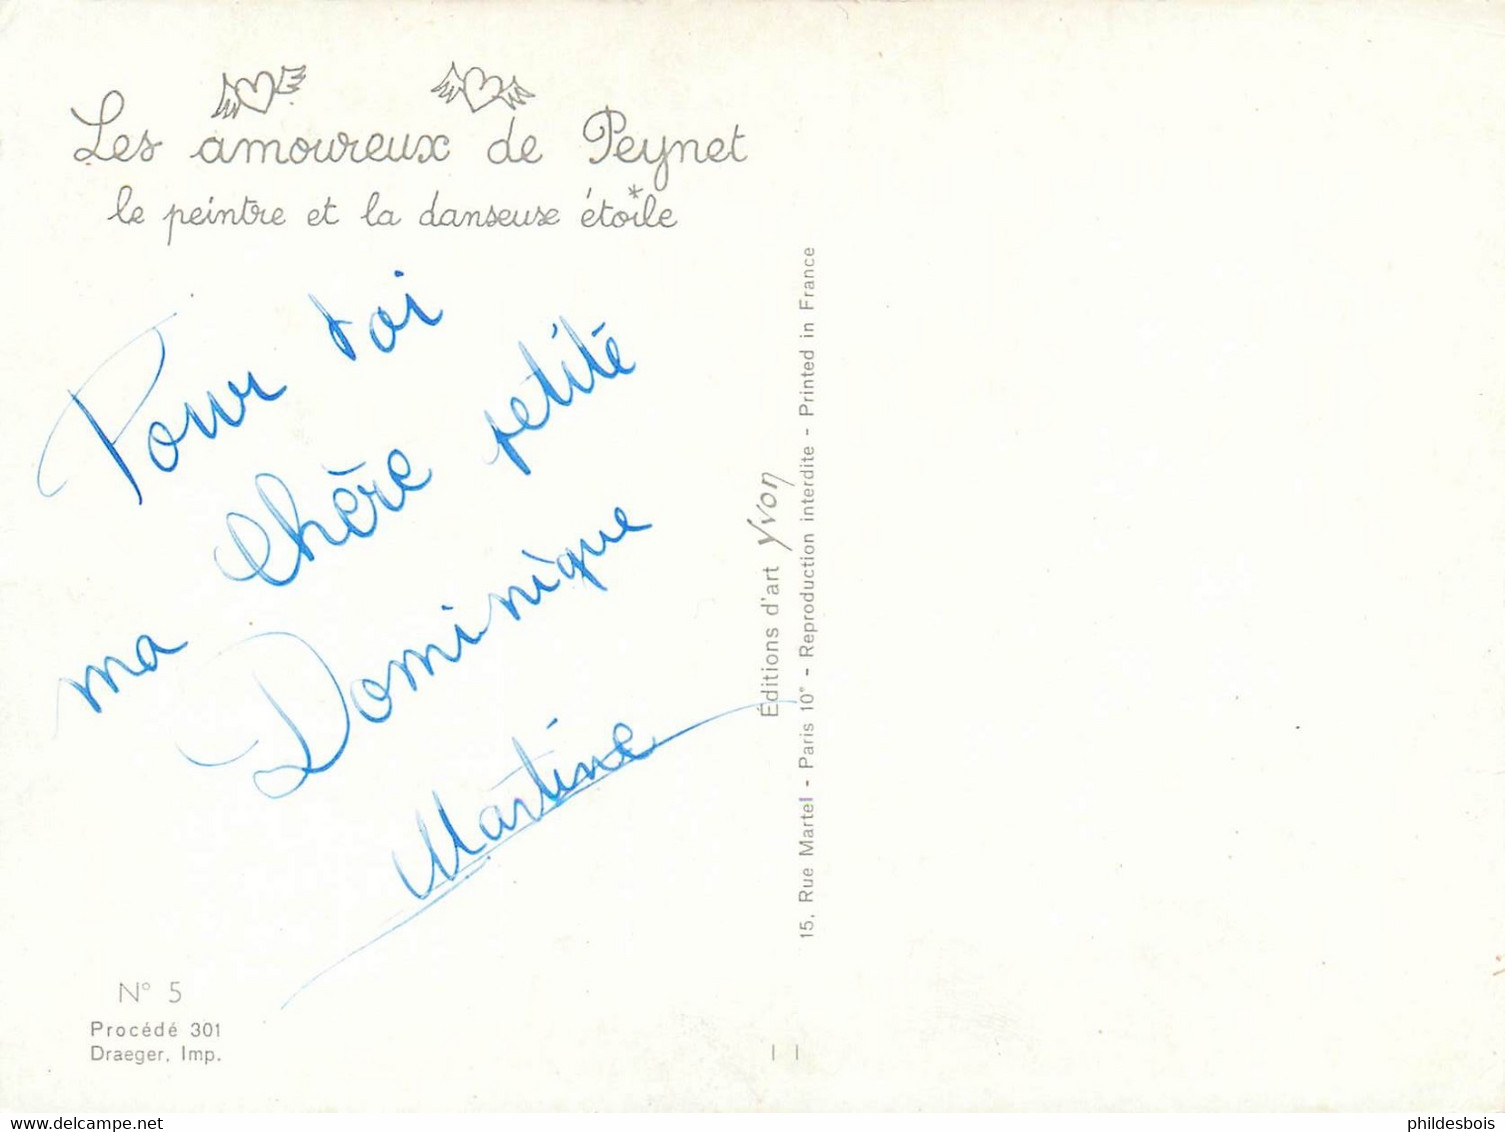 Les amoureux de Peynet
le peintre et la danseuse étoile
Pour toi
ma chère petite
Dominique
Martine
Éditions d'art Yvon
15, Rue Martel - Paris 10e - Reproduction interdite - Printed in France
N° 5
Procédé 301
Draeger, Imp.
delcampe.net
phildesbois